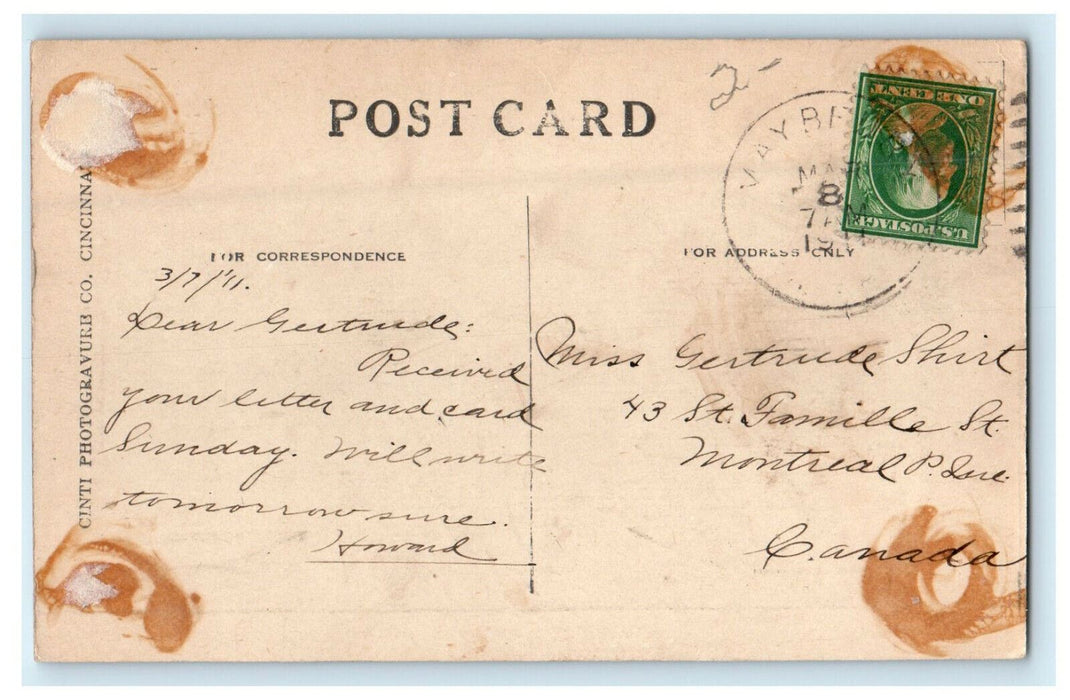 POST CARD
2-
ONE CENT
U.S. POSTAGE
MAR
8
7 AM
1911
CINTI PHOTOGRAVURE CO. CINCINNA
FOR CORRESPONDENCE
FOR ADDRESS ONLY
3/7/'11.
Dear Gertrude:
Received
your letter and card
Sunday. Will write
tomorrow sure.
Howard
Miss Gertrude Shirt
43 St. Famille St.
Montreal P. Que.
Canada